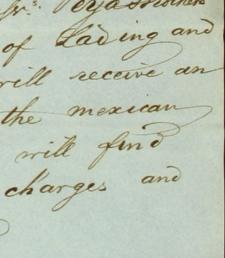 of Lading and
will receive an
the mexican
will find
charges and